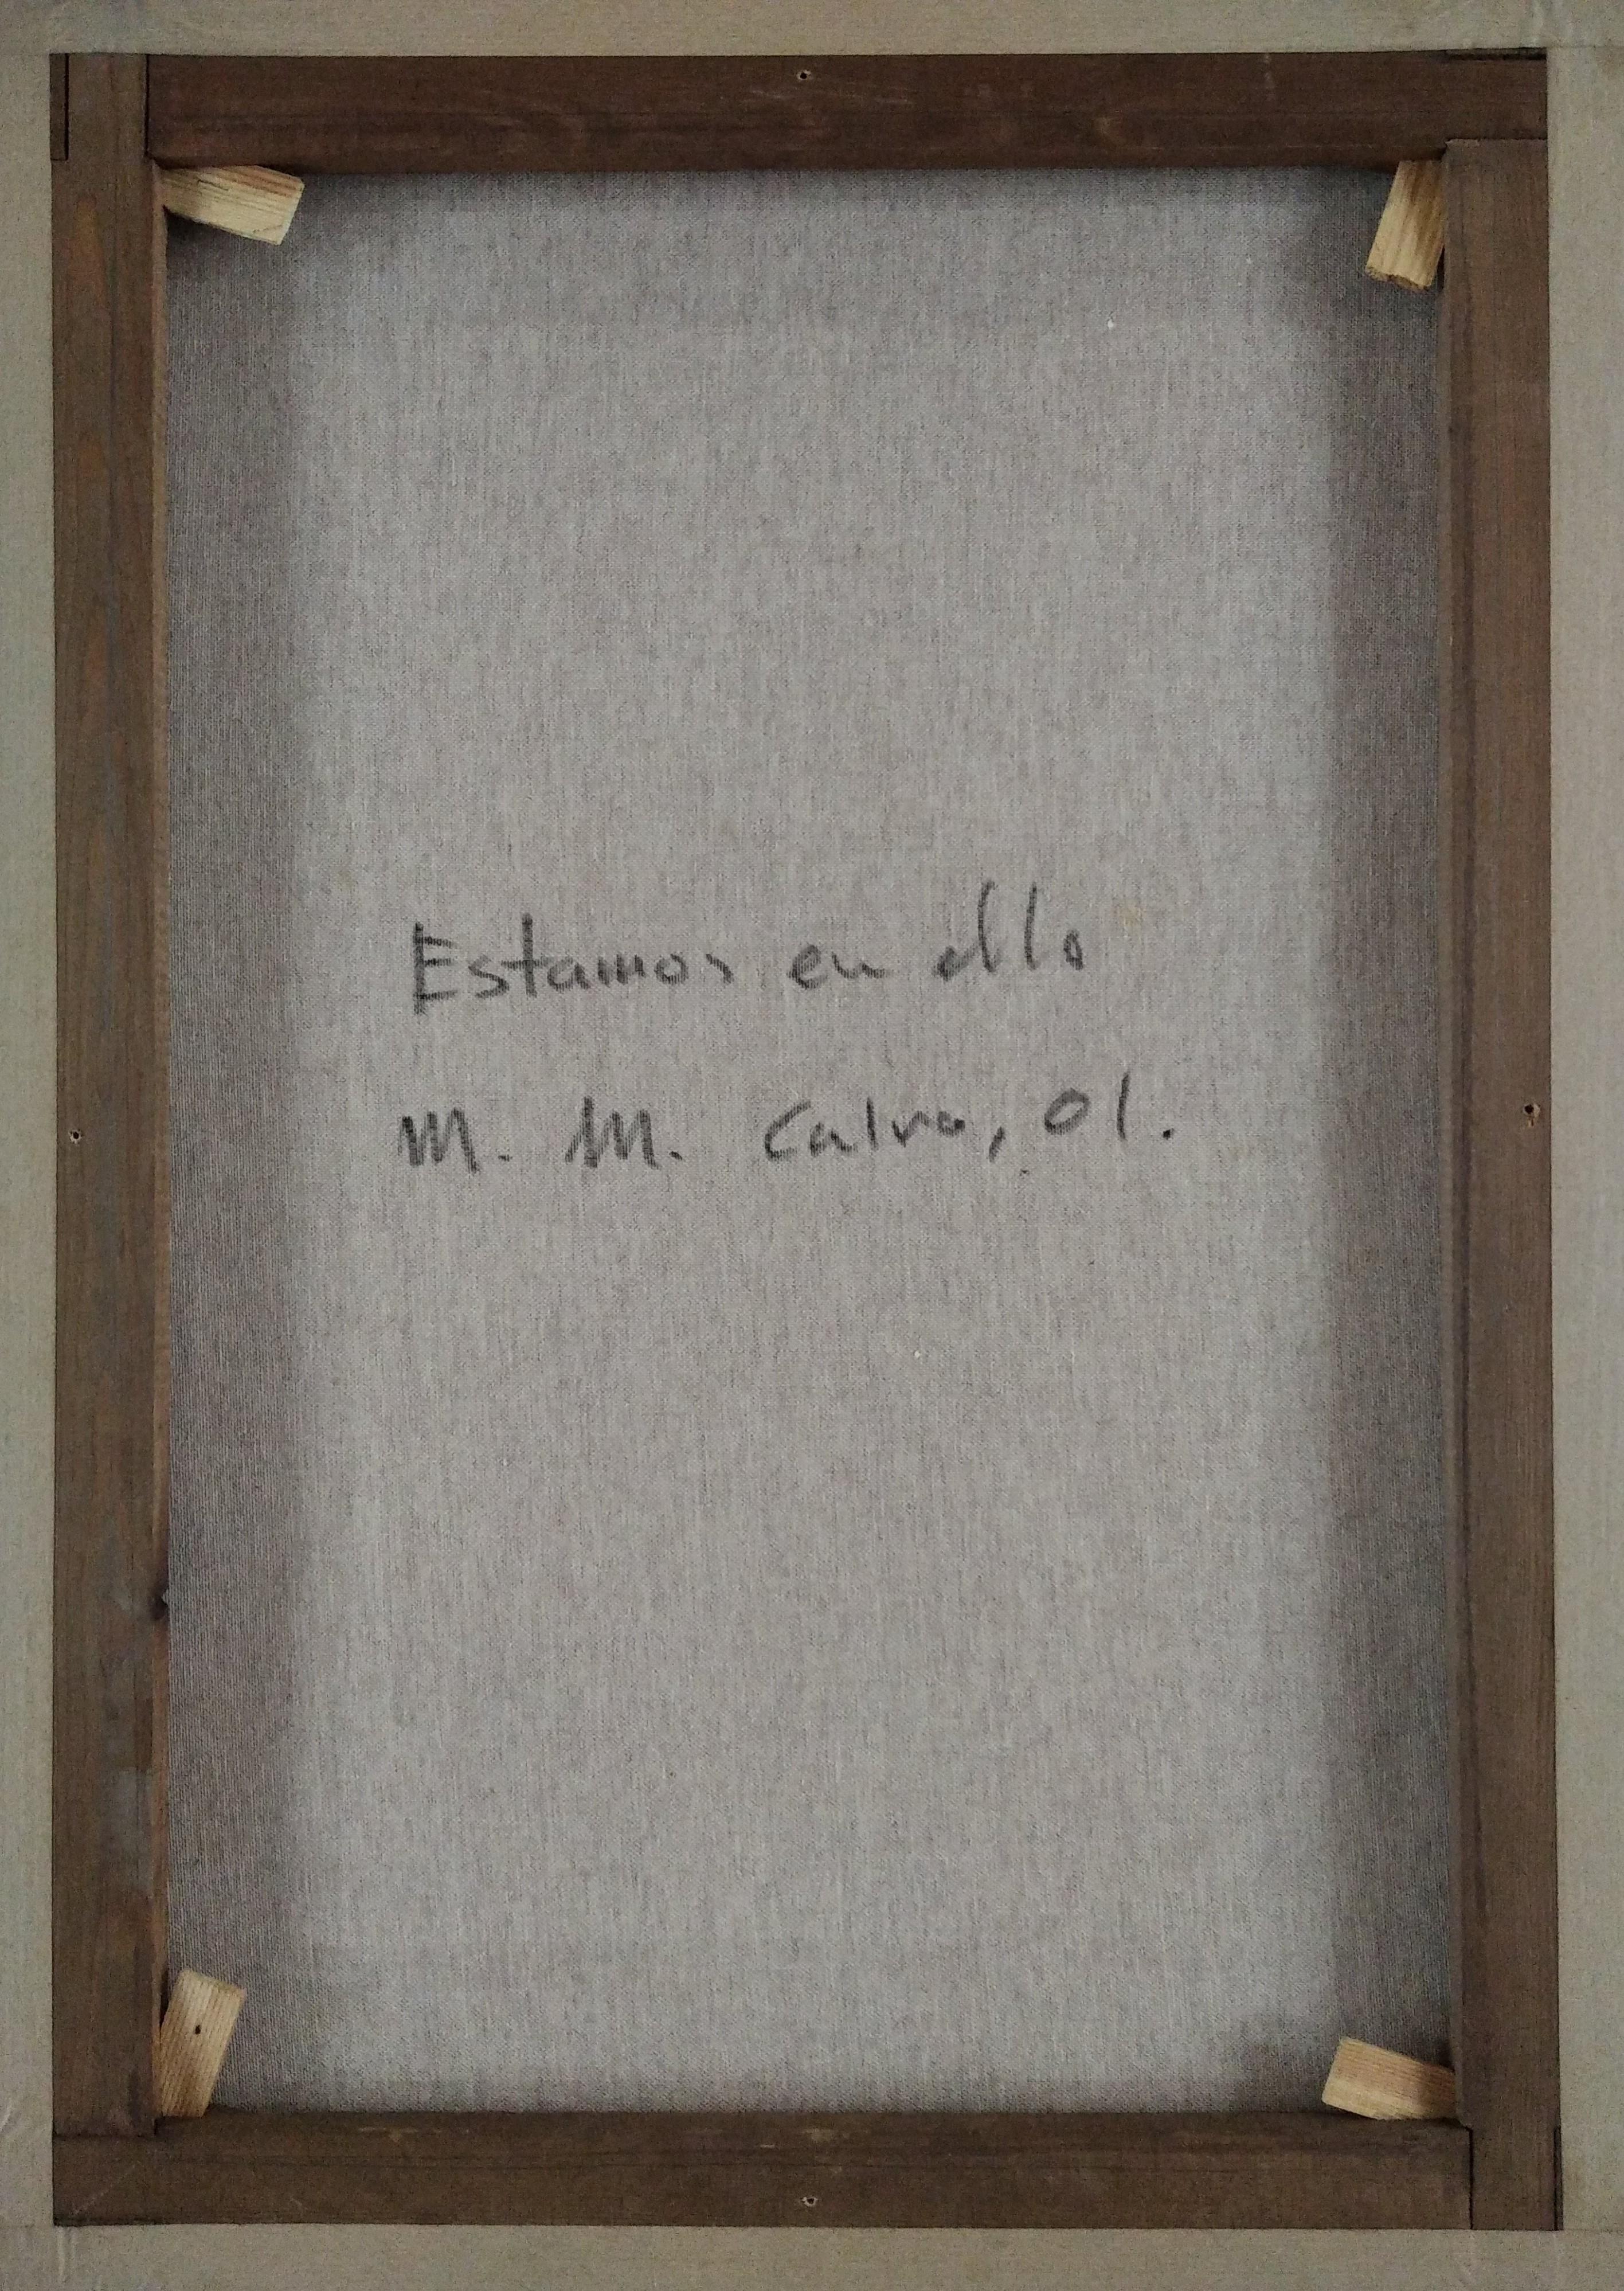 Estamos en ello
M. M. Calvo, 01.